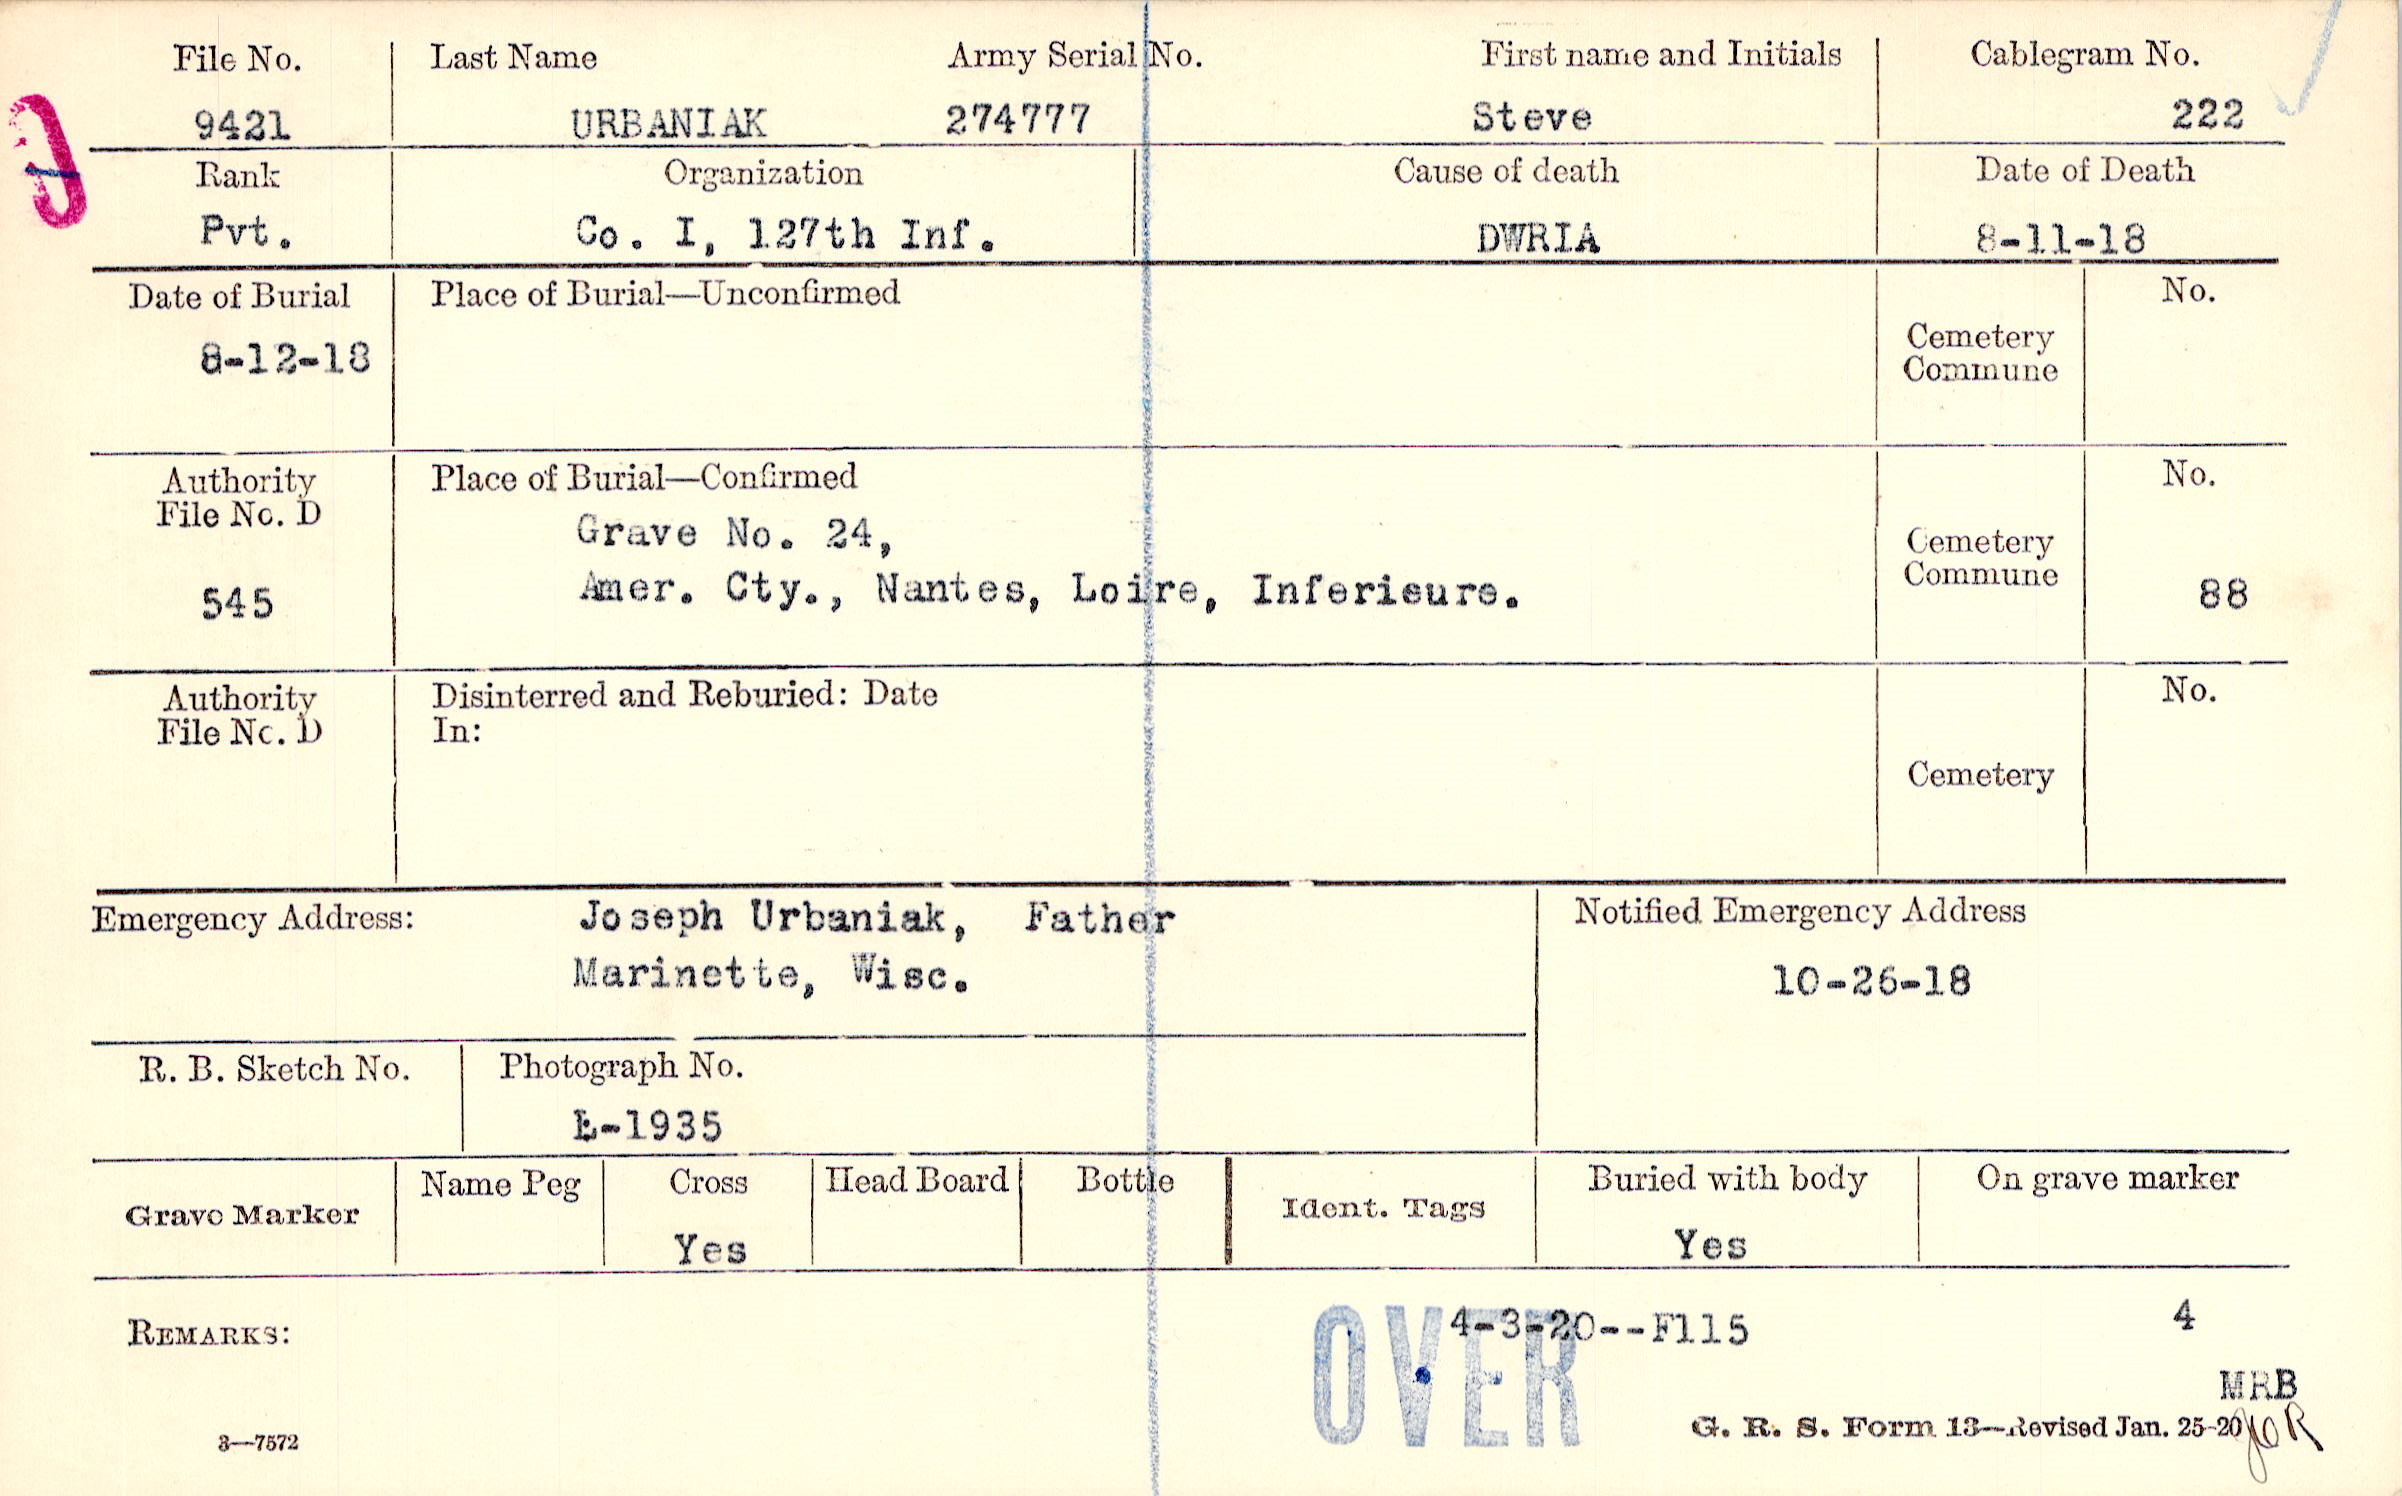 File No. Last Name Army Serial No. First name and Initials Cablegram No.
9421 URBANIAK 274777 Steve 222
Rank Organization Cause of death Date of Death
Pvt. Co. I, 127th Inf. DWRIA 8-11-18
Date of Burial Place of Burial—Unconfirmed No.
8-12-18
Cemetery
Commune
Authority
File No. D
545
Place of Burial—Confirmed
Grave No. 24,
Amer. Cty., Nantes, Loire, Inferieure.
Cemetery
Commune
No.
88
Authority
File No. D
Disinterred and Reburied: Date
In:
Cemetery
No.
Emergency Address: Joseph Urbaniak, Father
Marinette, Wisc.
Notified Emergency Address
10-26-18
R. B. Sketch No. Photograph No.
L-1935
Grave Marker
Name Peg Cross Head Board Bottle
Yes
Ident. Tags
Buried with body On grave marker
Yes
REMARKS:
OVER
4-3-20--F115 4
MRB
3—7572
G. R. S. Form 13—Revised Jan. 25-20